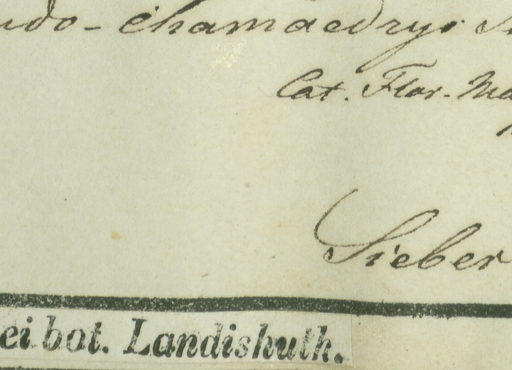 udo-chamaedrys
Cat. Flor. Ma
Sieber
ei bot. Landishuth.